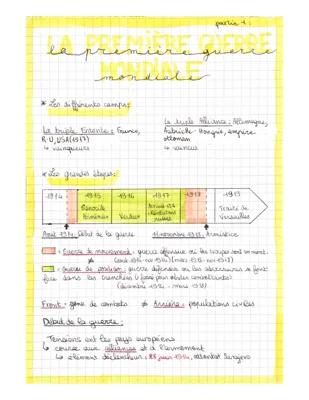 partie 1 :
LA PREMIÈRE GUERRE
MONDIALE
la première guerre
mondiale
* Les différents camps:
La triple Entente : France,
R-U, USA (1917)
↳ vainqueurs
La triple Alliance : Allemagne,
Autriche-Hongrie, empire
ottoman
↳ vaincus
* Les grandes étapes:
1914 1915 1916 1917 1918 1919
Génocide
Arméniens
Verdun
Révolutions
russes
Traité de
Versailles
Août 1914: Début de la guerre
11 novembre 1918: Armistice
= Guerre de mouvement : guerre offensive où les troupes sont en mvt.
≠ (août 1914 - nov 1914) (mars 1918 - nov 1918)
= Guerre de position : guerre défensive où les adversaires se font
face dans les tranchées
(décembre 1914 - mars 1918)
Front = zone de combats ≠ Arrière = populations civiles
Début de la guerre :
→ Tensions ent les pays européens
↳ course aux alliances et à l'armement
↳ élément déclencheur : 28 juin 1914, attentat Sarajevo